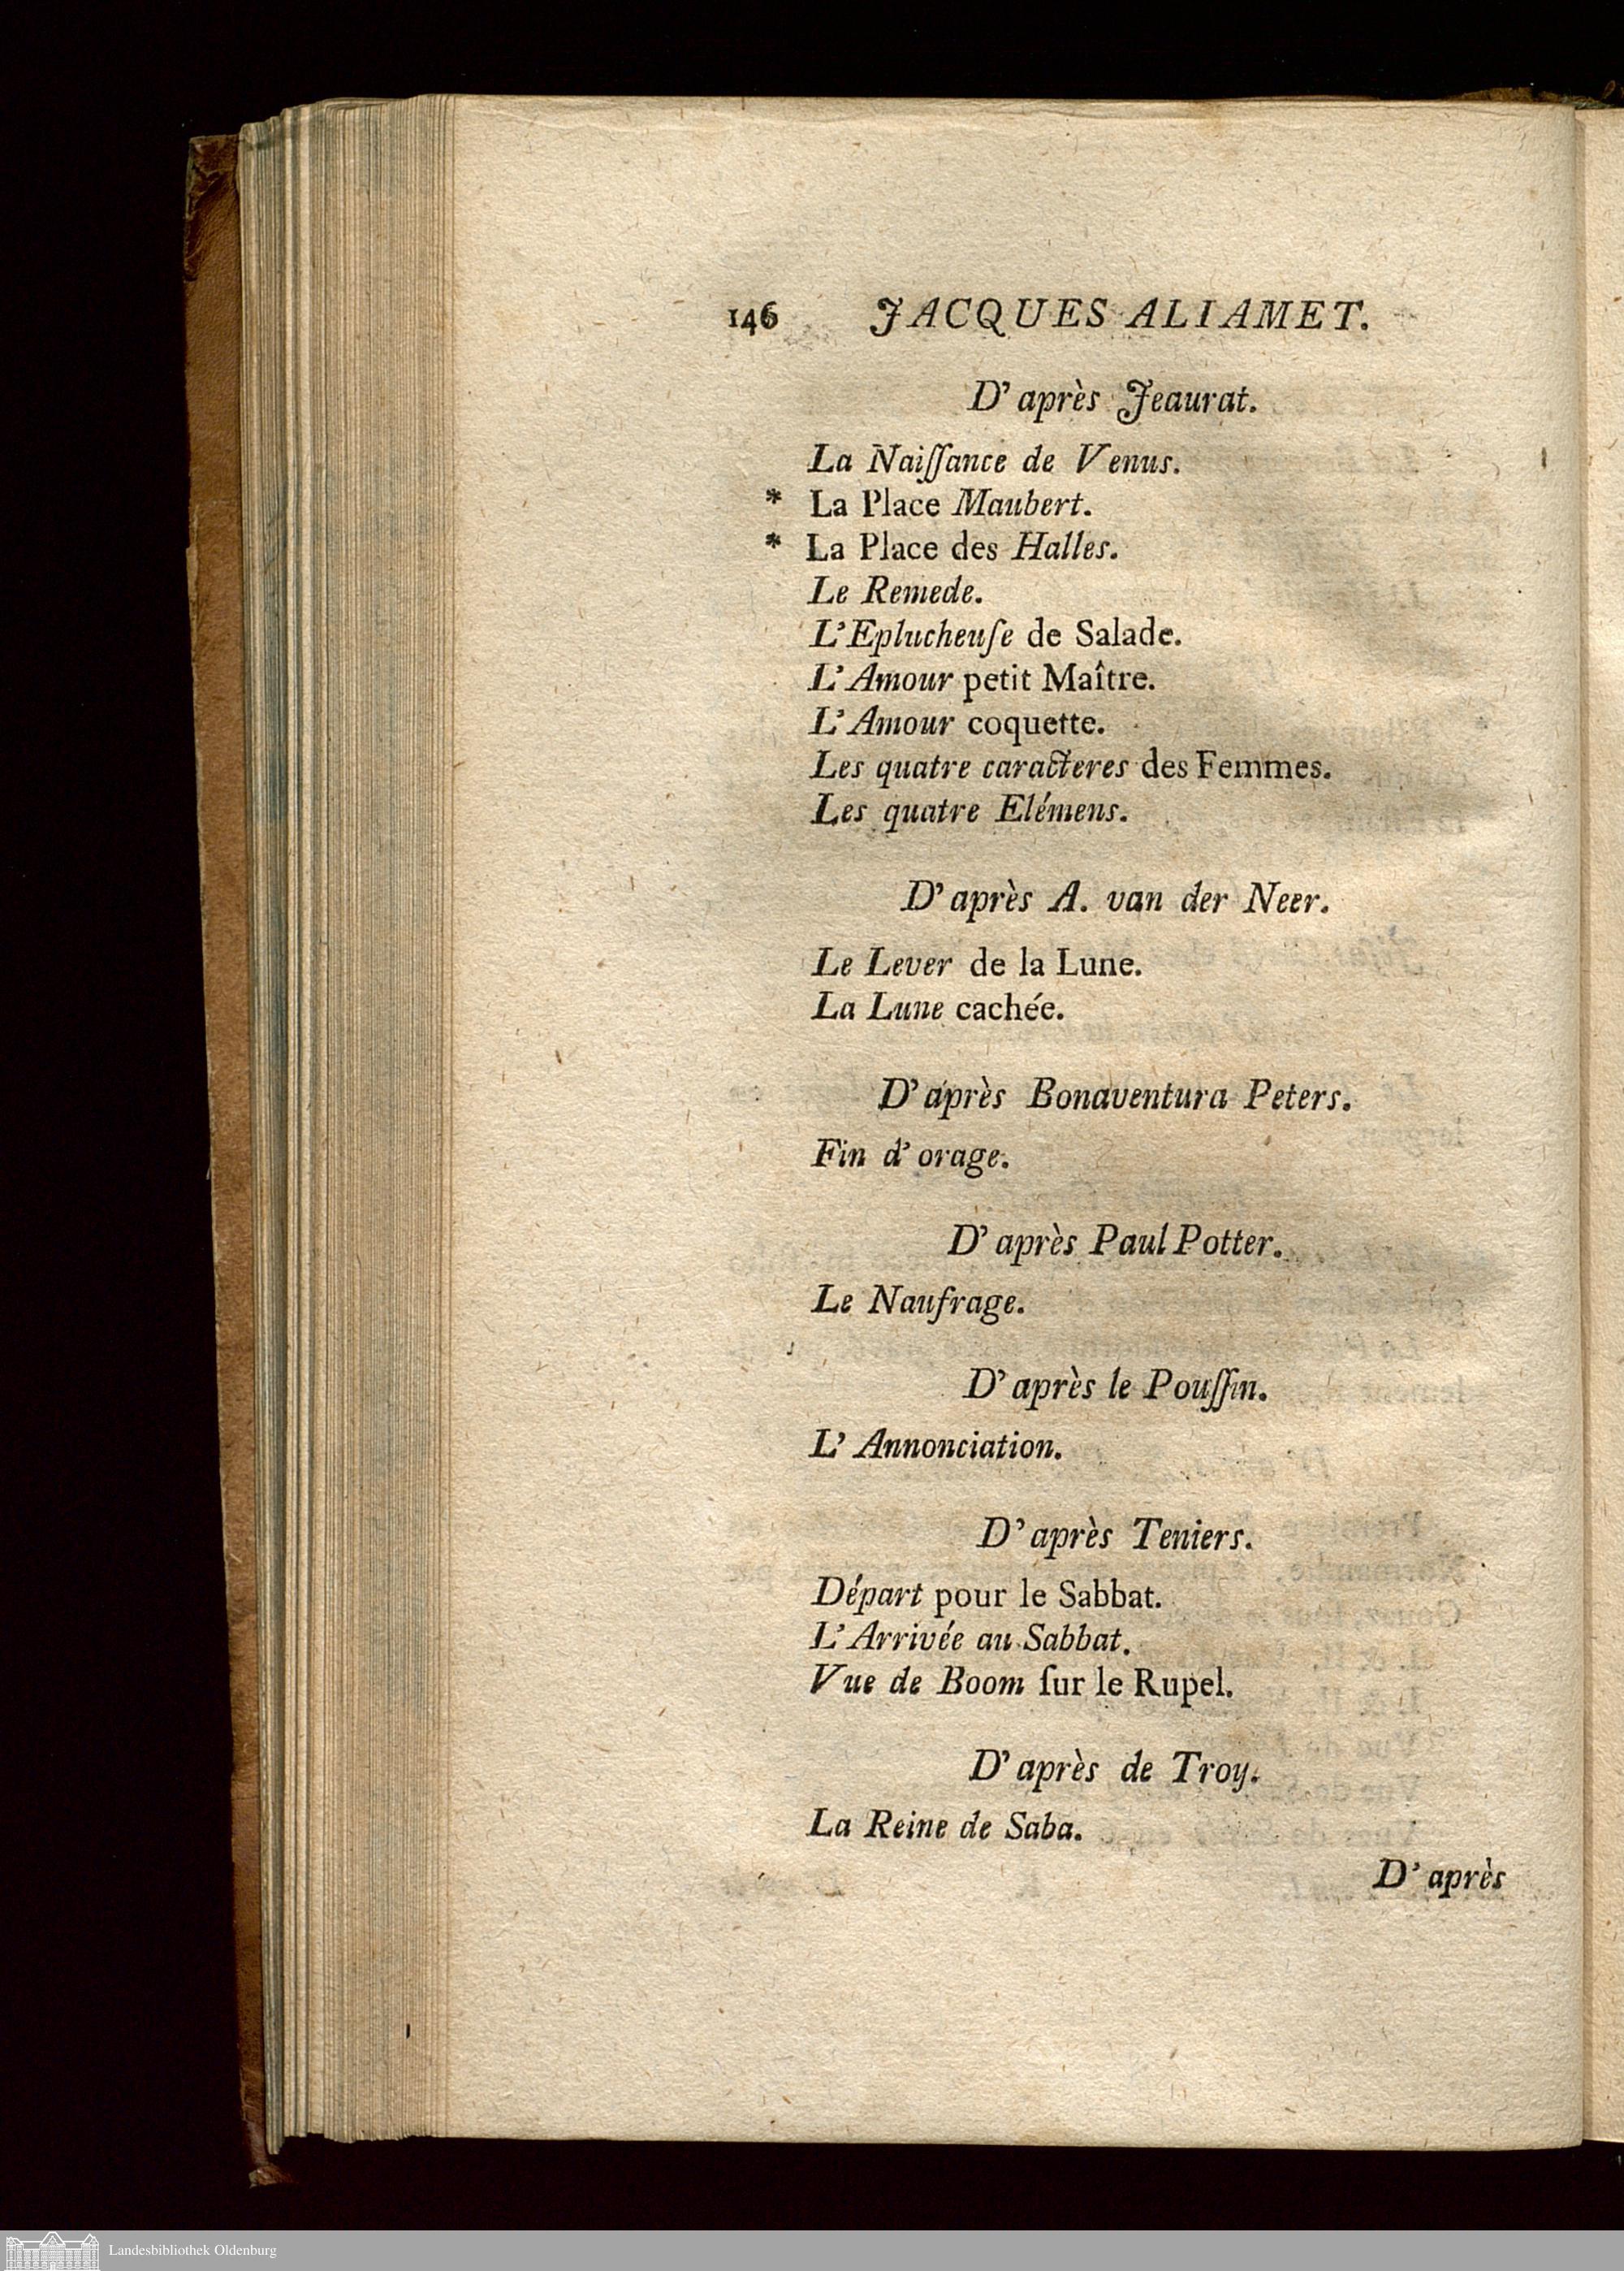 146 JACQUES ALIAMET.
D' après Jeaurat.
La Naiſſance de Venus.
* La Place Maubert.
* La Place des Halles.
Le Remede.
L'Eplucheuſe de Salade.
L'Amour petit Maître.
L'Amour coquette.
Les quatre caracteres des Femmes.
Les quatre Elémens.
D' après A. van der Neer.
Le Lever de la Lune.
La Lune cachée.
D' après Bonaventura Peters.
Fin d' orage.
D' après Paul Potter.
Le Naufrage.
D' après le Pouſſin.
L' Annonciation.
D' après Teniers.
Départ pour le Sabbat.
L'Arrivée au Sabbat.
Vue de Boom ſur le Rupel.
D' après de Troy.
La Reine de Saba.
D' après
Landesbibliothek Oldenburg